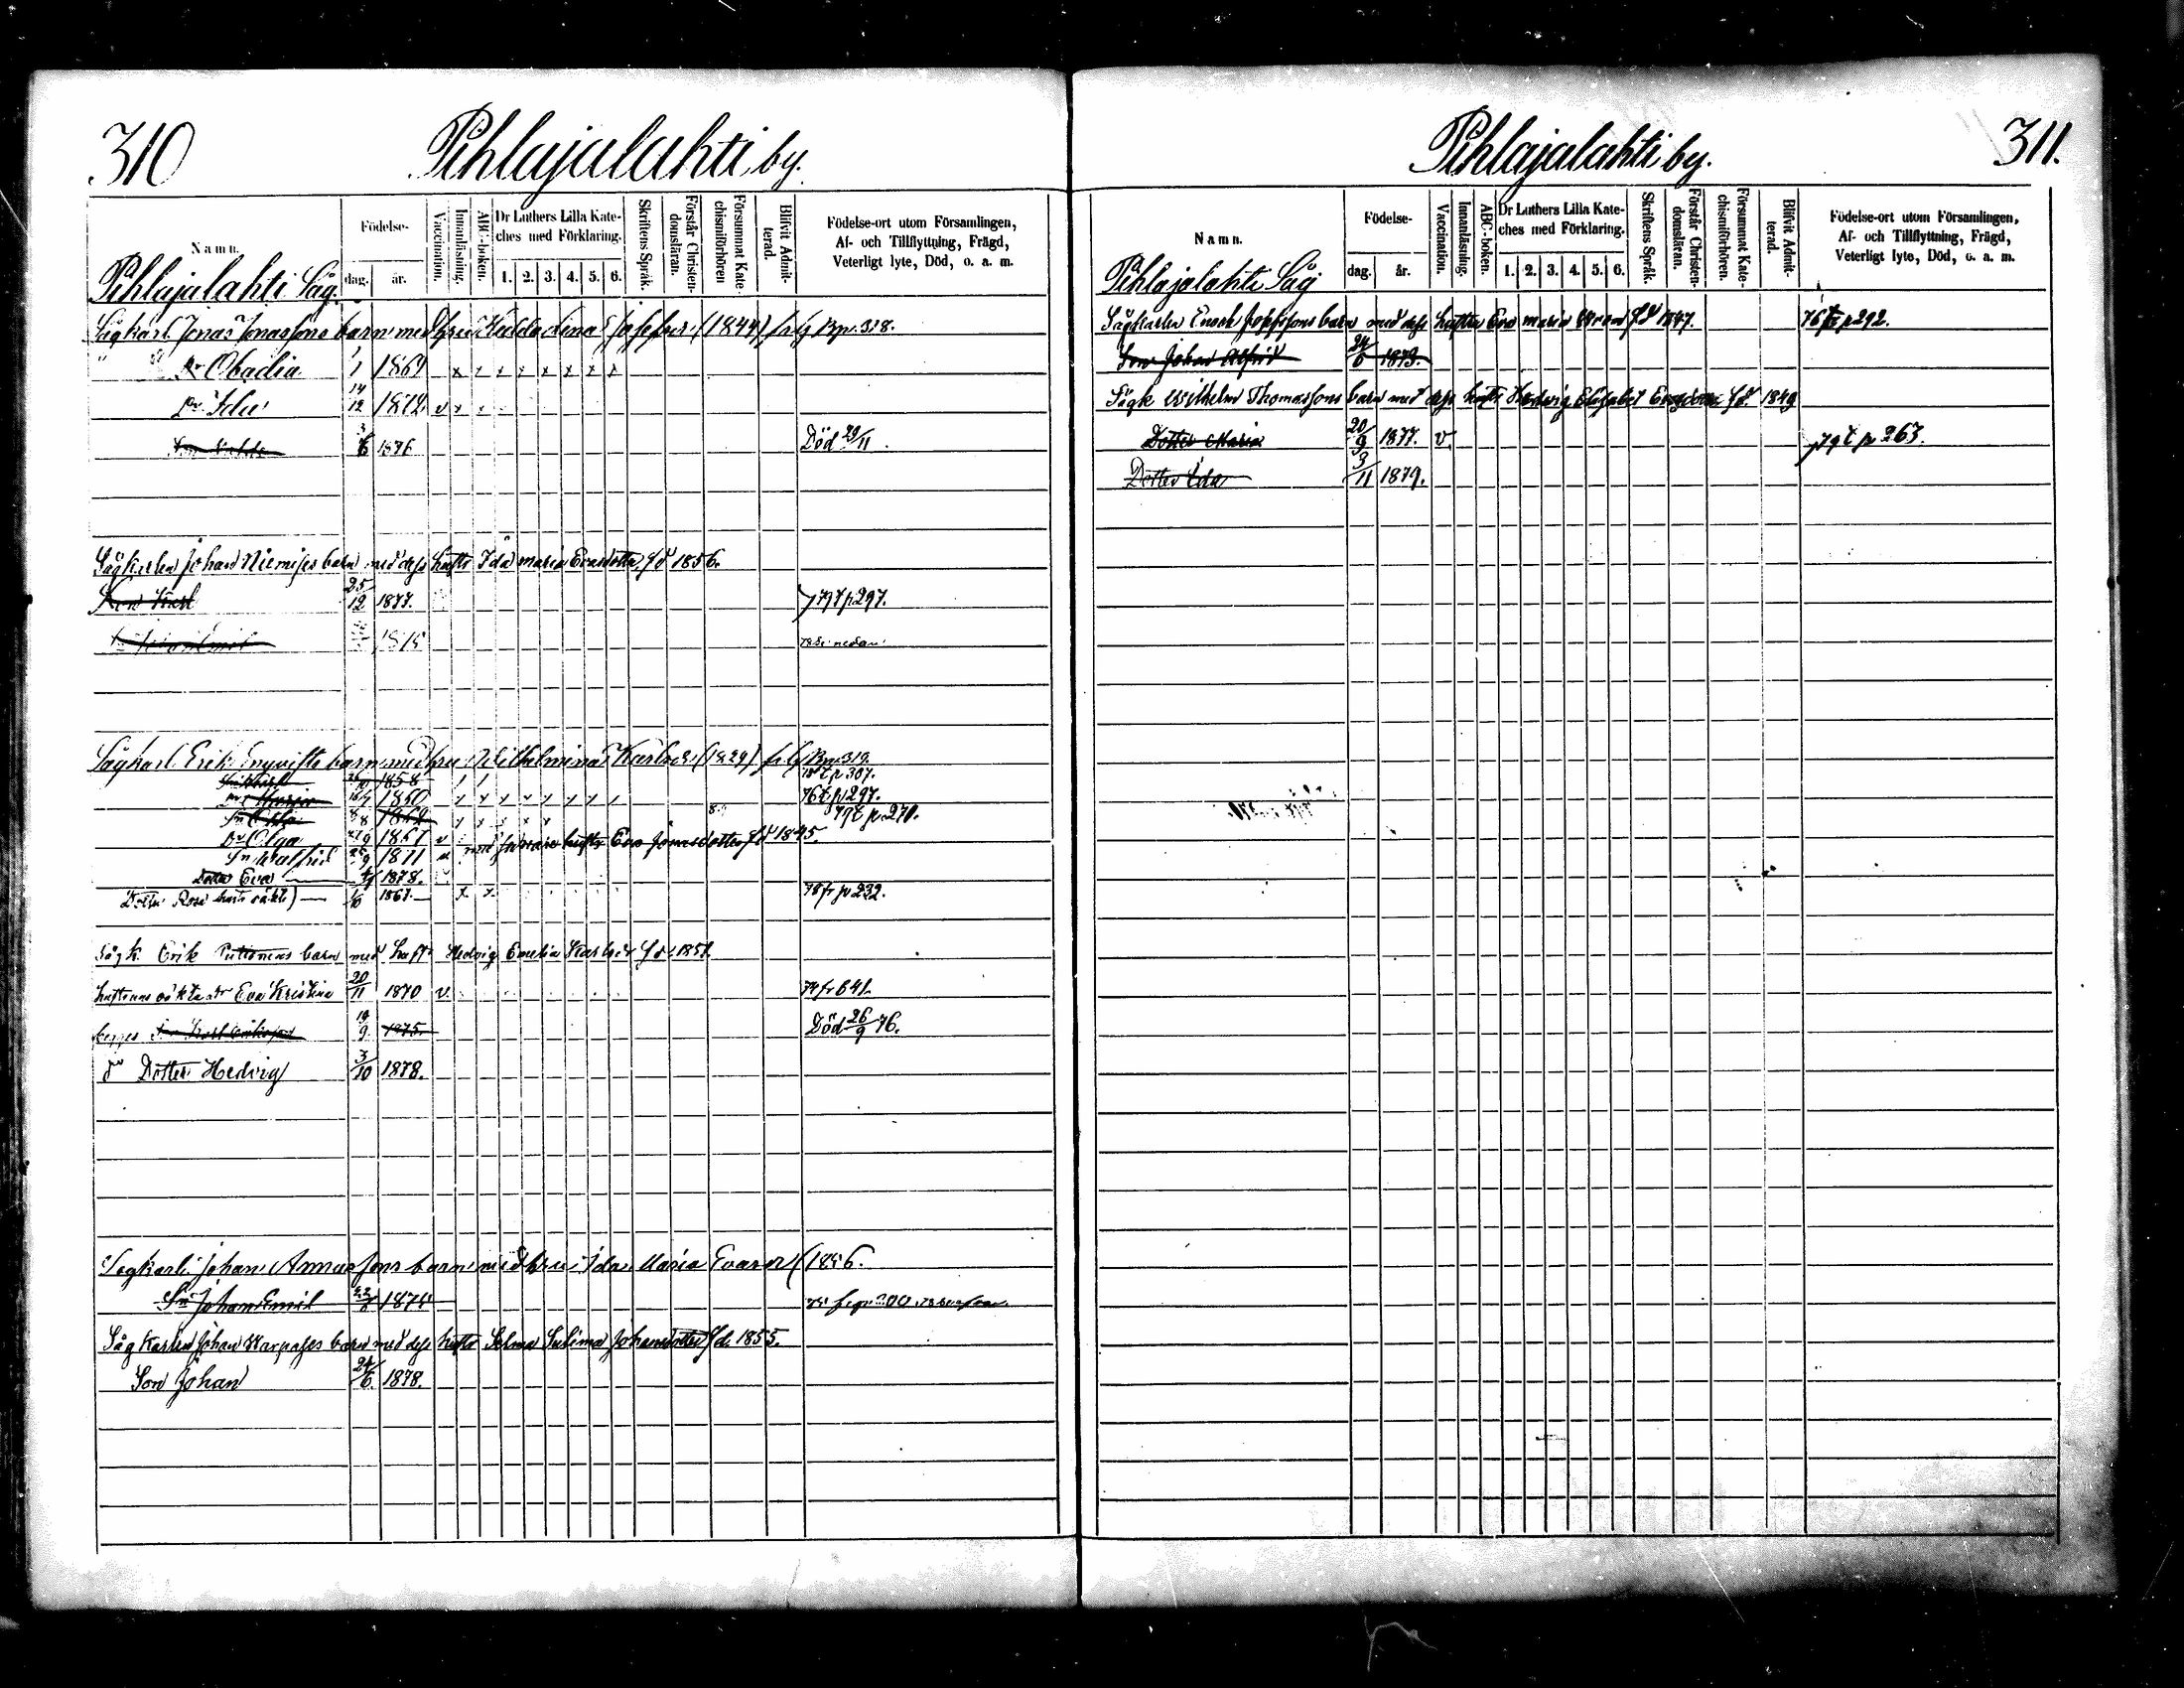 310
Pihlajalahti by.
Namn.
Födelse-
dag.
år.
Vaccination.
Innanläsning.
ABC-boken.
Dr Luthers Lilla Kate-
ches med Förklaring.
1. 2. 3. 4. 5. 6.
Skriftens Språk.
Förstår Christen-
domsläran.
Försummat Kate-
chismiförhören
Blifvit Admit-
terad.
Födelse-ort utom Församlingen,
Af- och Tillflyttning, Frägd,
Veterligt lyte, Död, o. a. m.
Pihlajalahti Såg.
Sågkarl. Jonas Jonassons barn med hru Hedda Lena Josefsdr. (1844)
Dr Obadia 1869
Dr Ida 14/12 1872 v
3/6 1876 Död 29/11.
Sågkarlen Johan Niemises barn med dess hustr Ida Maria Evasdotter fd 1856.
Son Karl 25/12 1877. 79 t p 297.
78 se nedan
Sågkarl Erik Enqvists barn med hru Wilhelmina Karlsdr. (1829) 319.
1858 t p 307.
Maria 1860 76 t p 297.
79 t p 270.
Dr Olga 1867 v
med förra hustr Eva Jonasdotter fd 1845.
Sn Walfrid 1871
Dotter Eva 1878.
Dotter Rosa 1867. 78 fr p 232.
Sågk. Erik barn med hustr Hedvig Emelia Karlsdr fd 1851
hustruns oäkta dr Eva Kristina 20/11 1870 v. 74 fr 641.
19/9 1875 Död 26/9 76.
do Dotter Hedvig 3/10 1878.
Sågkarl. Johan barn med hru Ida Maria Evasdr (1856.
Sn Johan Emil 1875
Sågkarlen Johan Karpases barn med dess hustr Selma Sulima Johansdotter fd. 1855.
Son Johan 24/6 1878.
311.
Pihlajalahti by.
Namn.
Födelse-
dag.
år.
Vaccination.
Innanläsning.
ABC-boken.
Dr Luthers Lilla Kate-
ches med Förklaring.
1. 2. 3. 4. 5. 6.
Skriftens Språk.
Förstår Christen-
domsläran.
Försummat Kate-
chismiförhören.
Blifvit Admit-
terad.
Födelse-ort utom Församlingen,
Af- och Tillflyttning, Frägd,
Veterligt lyte, Död, o. a. m.
Pihlajalahti Såg
Sågkarlen Enock Josefssons barn med dess hustru Eva Maria fd 1847. 76 p 292.
Son Johan Alfrid 24/6 1873.
Sågk Wilhelm Thomassons barn med dess hustr Hedvig Elisabet fd 1849
Dotter Maria 20/9 1877. v. 79 t p 263.
Dotter Ida 3/11 1879.